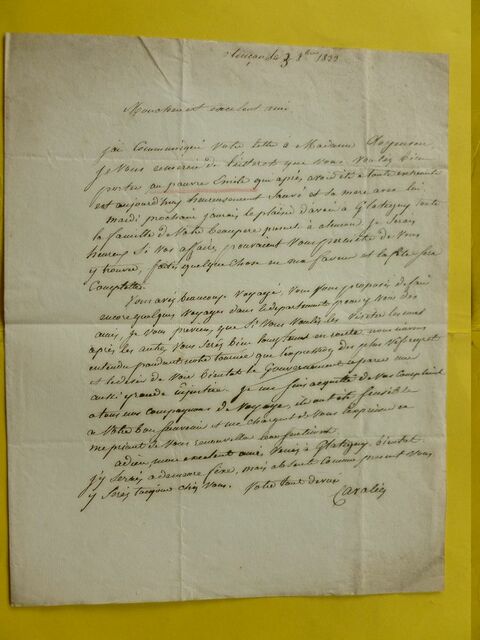 Alençon le 3 8bre 1822
Mon cher et excelent ami
j'ai Communiqué Votre lettre à Madame
je Vous remercie de l'interet que Vous Voulez bien
porter au pauvre Emile qui après avoir été à toute extremité
est aujourd'huy heureusement Sauvé et Sa mere avec lui
mardi prochain j'aurai le plaisir d'avoir à Glatigny toute
la famille de Votre Beaupere je Serais
heureux Si Vos affaires pouvaient Vous permettre de Vous
y trouver, faites quelque chose en ma faveur et la fête Sera
Complette.
Vous avez beaucoup Voyagé, Vous Vous proposez de faire
encore quelques Voyages dans le departement pour y Voir des
amis, je Vous previens que Si Vous Voulez les Visiter les uns
après les autres Vous Serez bien longtems en route, nous avons
entendu pendant notre tournée que l'expression des plus Vifs regrets
et le desir de Voir bientot le Gouvernement reparer une
aussi grande injustice. je me Suis acquitté de Vos Complimens
a tous nos compagnons de Voyage, ils ont été Sensible
a Votre bon Souvenir et me chargent de Vous l'exprimer en
me priant de Vous renouveller
adieu mon excelent ami Venez à Glatigny bientot
j'y Serai a demeure fixe, mais absent comme present Vous
y Serez toujours chez Vous. Votre tout devoué